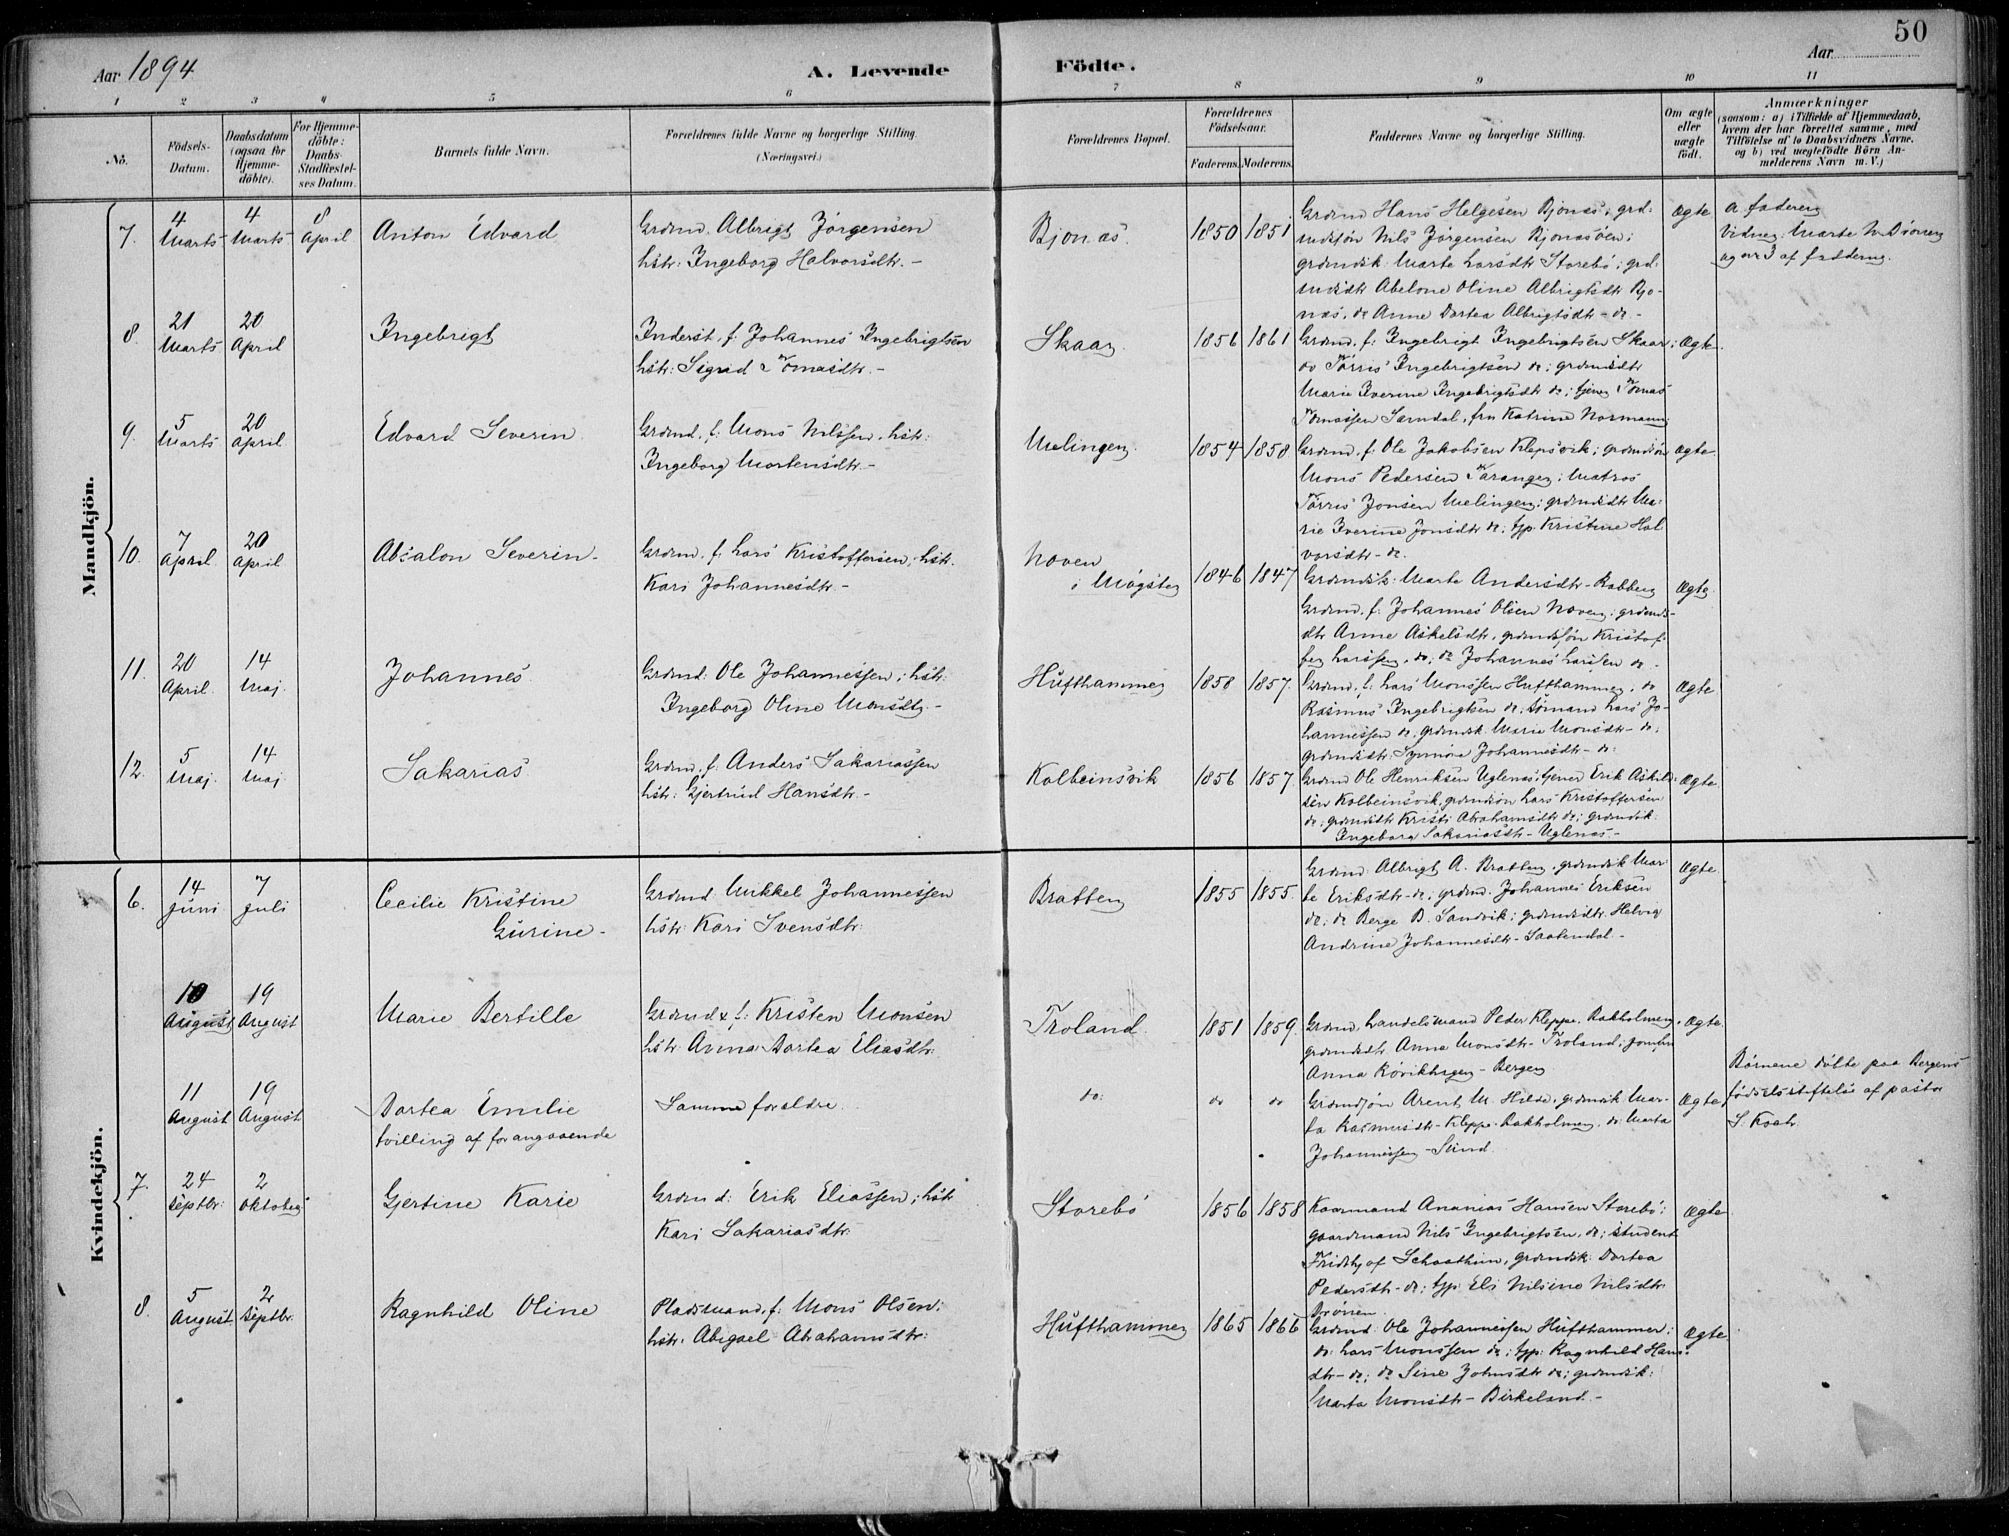 50
Aar 1894
A. Levende Födte.
Aar
1 2 3 4 5 6 7 8 9 10 11
No.
Födsels-Datum.
Daabsdatum (ogsaa for Hjemme-döbte).
For Hjemme-döbte: Daabs-Stadfæstel-ses Datum.
Barnets fulde Navn.
Forældrenes fulde Navne og borgerlige Stilling.
(Næringsvei.)
Forældrenes Bopæl.
Forældrenes Födselsaar.
Faderens. Moderens.
Faddernes Navne og borgerlige Stilling.
Om ægte eller uægte födt.
Anmærkninger
(saasom: a) i Tilfælde af Hjemmedaab, hvem der har forrettet samme, med Tilföielse af to Daabsvidners Navne, og b) ved uægtefödte Börn An-melderens Navn m. V.)
Mandkjön.
7. 4 Marts 4 Marts 8 April Anton Edvard
Grdmd. Albrigt Jørgensen
hstr: Ingeborg Halvorsdtr. -
Bjonæs. 1850 1851
Grdmd Hans Helgesen Bjonæs; grd:
mdsøn Nils Jørgensen Bjonæsøen;
grdmdsk. Marte Larsdtr Storebø; grd.
mdsdtr Abelone Oline Albrigtsdtr Bjo-
næs, do Anne Dortea Albrigtsdtr - do -
Ægte
a. faderen
Vidner: Marte
og nr 3 af fadderne.
8. 21 Marts 20 April Ingebrigt
Inderst, f: Johannes Ingebrigtsen
hstr: Sigrid Tomasdtr. -
Skaar. 1856 1861
Grdmd, f: Ingebrigt Ingebrigtsen Skaar;
do Tørris Ingebrigtsen do; grdmdsdtr
Marie Iverine Ingebrigtsdtr do; tjener Tomas
Tomassen Samdal, fru Katrine Normann
Ægte.
9. 5 Marts 20 April Edvard Severin
Grdmd, f: Mons Nilssen, hstr:
Ingeborg Mortensdtr. -
Melingen. 1854 1858
Grdmd, f: Ole Jakobsen Klepsvik; grdmdsøn
Mons Pedersen Taranger; Matros
Tørris Jonsen Melingen; grdmdsdtr Ma-
rie Iverine Jonsdtr do; tjp. Kristine Hal
vorsdtr - do.
Ægte
10. 7 April 20 April Absalon Severin -
Grdmd, f: Lars Kristoffersen; hstr.
Kari Johannesdtr. -
Noven
i Møgster 1846 1847
Grdmdsk: Marte Andersdtr - Rabben
Grdmd, f: Johannes Olsen Noven; grdmds-
dtr Anne Askelsdtr, grdmdsøn Kristof-
fer Larssen, do; do Johannes Larsen do -
Ægte
11. 20 April. 14 Maj. Johannes
Grdmd: Ole Johannessen; hstr:
Ingeborg Oline Monsdtr. -
Hufthammer 1858 1857.
Grdmd, f: Lars Monssen Hufthammer, do
Rasmus Ingebrigtsen do; sømand Lars Jo-
hannessen do, grdmdsk. Marie Monsdtr - do;
grdmdsdtr. Synnøva Johannesdtr - do:
Ægte
12. 5 Maj. 14 Maj. Sakarias
Grdmd, f: Anders Sakariassen
hstr: Gjertrud Hansdtr. -
Kolbeinsvik 1856 1857.
Grdmd Ole Henriksen Uglenæs; tjener Erik Askild-
sen Kolbeinsvik, grdmdsøn Lars Kristoffersen
do; grdmdsdtr Kristi Abrahamsdtr do; grdmdsk.
Ingeborg Sakariasdtr - Uglenæs -
Ægte
Kvindekjön.
6. 14 Juni 7 Juli Cecilie Kristine
Gurine -
Grdmd Mikkel Johannessen
hstr: Kari Svensdtr:
Bratten 1855 1855.
Grdmd Albrigt A. Bratten, grdmdsk Mar-
te Eriksdtr - do; grdmd. Johannes Eriksen
do; do Berge B. Sandvik; grdmdsdtr. Helvig
Andrine Johannesdtr - Saatendal. -
Ægte
10 August 19 August Marie Bertille
Grdmd & f: Kristen Monsen
hstr. Anna Dortea Eliasdtr.
Troland. 1851 1859.
Grdmd, handelsmand Peder Kleppe. Bakholmen,
grdmdsdtr Anna Monsdtr - Troland; jomfru
Anna Rövikhagen - Bergen
Ægte
Børnene døbte paa Bergens
fødselsstiftelse af pastor
S. Koch
11 August 19 August Dortea Emilie
tvilling af forangaaende
Samme forældre.
do: do do
Grdmdsøn Arent M. Hilde, grdmdsk Mar-
ta Rasmusdtr - Kleppe. Bakholmen, do: Marta
Johannessen - Sund.
Ægte
7. 24 Septbr: 2 Oktober Gjertine Karie
Grdmd: Erik Eliassen; hstr
Kari Sakariasdtr.
Storebø 1856 1858
Kaarmand Ananias Hansen Storebø;
gaardmand Nils Ingebrigtsen, do; student
Fridthjof Schaathun, grdmdsk. Dortea
Pedersdtr - do; tjp. Els Nilsine Nilsdtr
Drønen.
Ægte
8. 5 August 2 Septbr. Ragnhild Oline
Pladsmand, f: Mons Olsen;
hstr. Abigael Abrahamsdtr:
Hufthammer 1865 1866
Grdmd. Ole Johannessen Hufthammer;
do: Lars Monssen do; tjp. Ragnhild Hans-
dtr - do; do Sine Johnsdtr do; grdmdsk:
Marta Monsdtr - Birkeland. -
Ægte